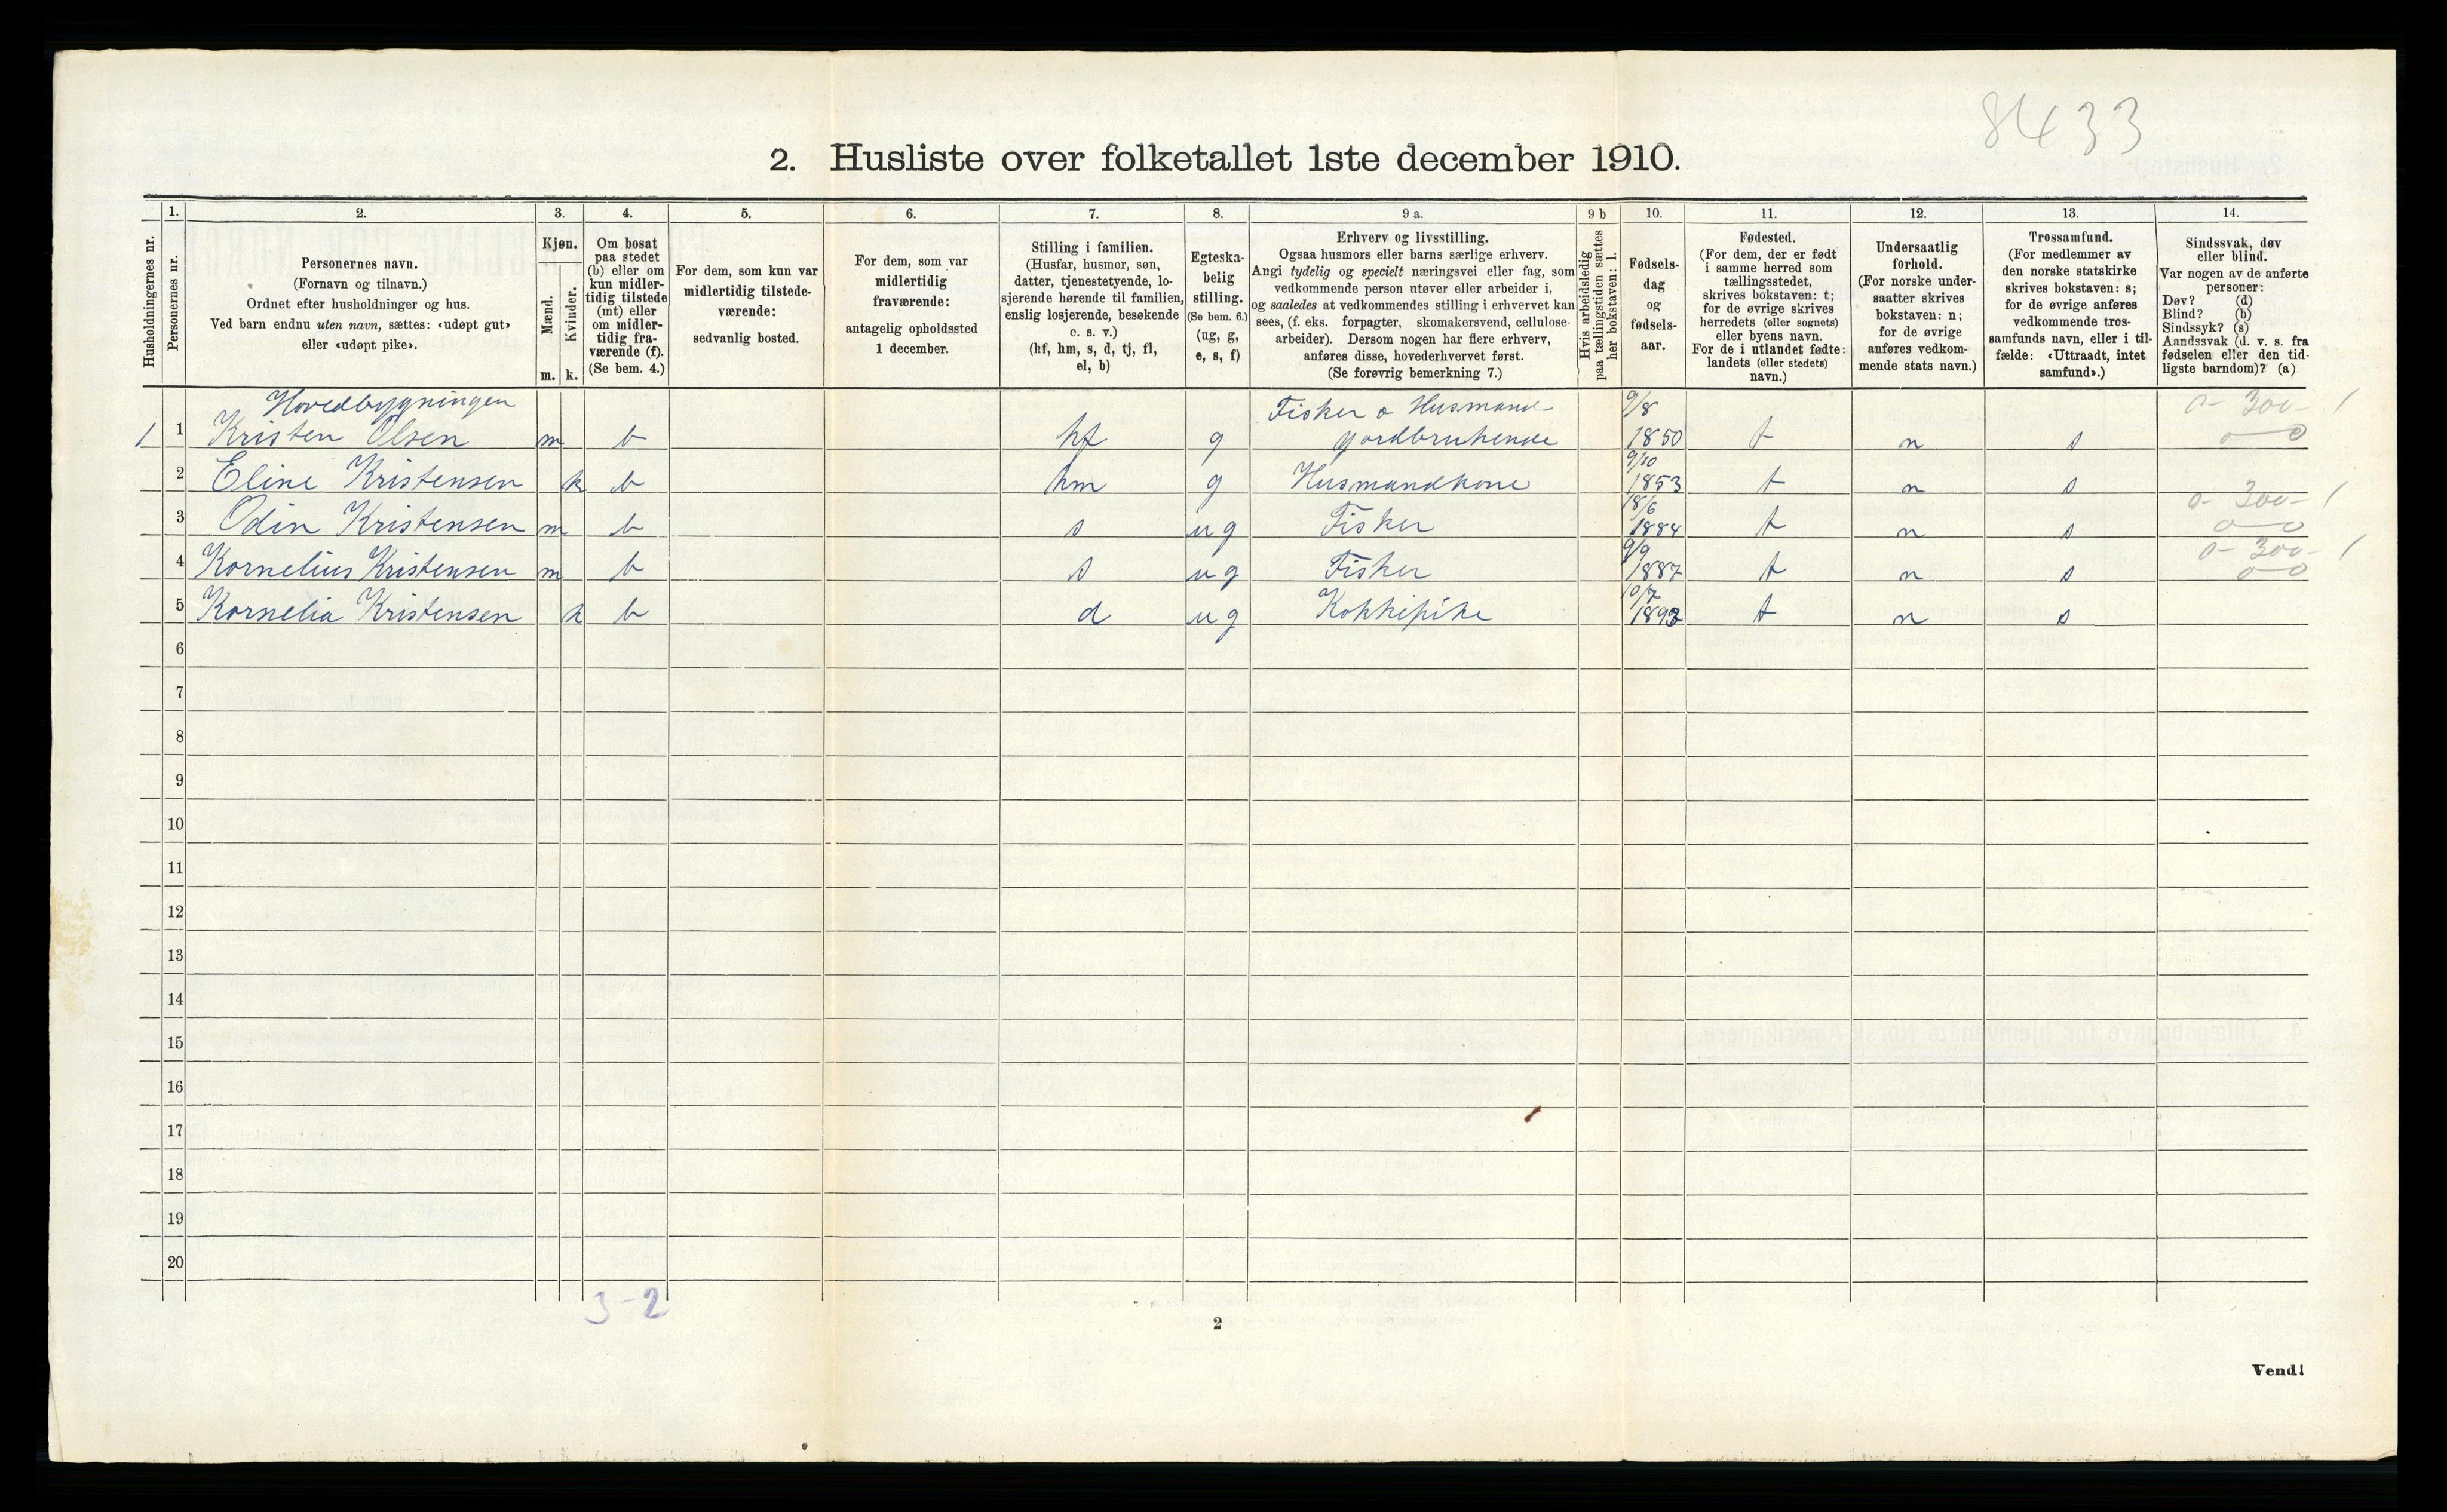 8433
2. Husliste over folketallet 1ste december 1910.
Husholdningernes nr.
1.
Personernes nr.
2.
Personernes navn.
(Fornavn og tilnavn.)
Ordnet efter husholdninger og hus.
Ved barn endnu uten navn, sættes: «udøpt gut»
eller «udøpt pike».
3.
Kjøn.
Mænd.
Kvinder.
m. k.
4.
Om bosat
paa stedet
(b) eller om
kun midler-
tidig tilstede
(mt) eller
om midler-
tidig fra-
værende (f).
(Se bem. 4.)
5.
For dem, som kun var
midlertidig tilstede-
værende:
sedvanlig bosted.
6.
For dem, som var
midlertidig
fraværende:
antagelig opholdssted
1 december.
7.
Stilling i familien.
(Husfar, husmor, søn,
datter, tjenestetyende, lo-
sjerende hørende til familien,
enslig losjerende, besøkende
o. s. v.)
(hf, hm, s, d, tj, fl,
el, b)
8.
Egteska-
belig
stilling.
(Se bem. 6.)
(ug, g,
e, s, f)
9 a.
Erhverv og livsstilling.
Ogsaa husmors eller barns særlige erhverv.
Angi tydelig og specielt næringsvei eller fag, som
vedkommende person utøver eller arbeider i,
og saaledes at vedkommendes stilling i erhvervet kan
sees, (f. eks. forpagter, skomakersvend, cellulose-
arbeider). Dersom nogen har flere erhverv,
anføres disse, hovederhvervet først.
(Se forøvrig bemerkning 7.)
9 b
Hvis arbeidsledig
paa tællingstiden sættes
her bokstaven: l.
10.
Fødsels-
dag
og
fødsels-
aar.
11.
Fødested.
(For dem, der er født
i samme herred som
tællingsstedet,
skrives bokstaven: t;
for de øvrige skrives
herredets (eller sognets)
eller byens navn.
For de i utlandet fødte:
landets (eller stedets)
navn.)
12.
Undersaatlig
forhold.
(For norske under-
saatter skrives
bokstaven: n;
for de øvrige
anføres vedkom-
mende stats navn.)
13.
Trossamfund.
(For medlemmer av
den norske statskirke
skrives bokstaven: s;
for de øvrige anføres
vedkommende tros-
samfunds navn, eller i til-
fælde: «Uttraadt, intet
samfund».)
14.
Sindssvak, døv
eller blind.
Var nogen av de anførte
personer:
Døv? (d)
Blind? (b)
Sindssyk? (s)
Aandssvak (d. v. s. fra
fødselen eller den tid-
ligste barndom)? (a)
Hovedbygningen Fisker o Husmand- 9/8 0- 300- 1
1 1 Kristen Olsen m b hf g gordbrukende 1850 t n s 0 0
9/10
2 Eline Kristensen k b hm g Husmandkone 1853 t n s
18/6 0- 300- 1
3 Odin Kristensen m b s ug Fisker 1884 t n s 0 0
9/9 0- 300- 1
4 Kornelius Kristensen m b s ug Fisker 1887 t n s 0 0
10/7
5 Kornelia Kristensen k b d ug Kokkepike 1893 t n s
6
7
8
9
10
11
12
13
14
15
16
17
18
19
20
3-2
2
Vend!